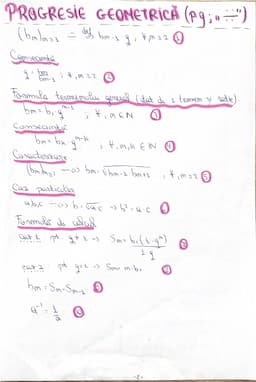 PROGRESIE GEOMETRICĂ (p.g. "÷÷")
(bn)n≥1 = def bn-1 · q, ∀ n≥2 ①
Consecință
q = bn/bn-1, ∀ n≥2 ②
Formula termenului general
bn = b1 · q^n-1, ∀ n ∈ N ③
Consecință
bn = bk · q^n-k, ∀ n, k ∈ N ④
Caracterizare
bn = √bn-1 · bn+1, ∀ n≥2 ⑤
Caz particular
a,b,c b = √a·c => b² = a·c ⑥
Formule de calcul
caz 1 pt. q ≠ 1 => Sn = b1(1-q^n)/1-q
caz 2 pt q=1 => Sn = n·b1
bn = Sn - Sn-1
a^-1 = 1/a